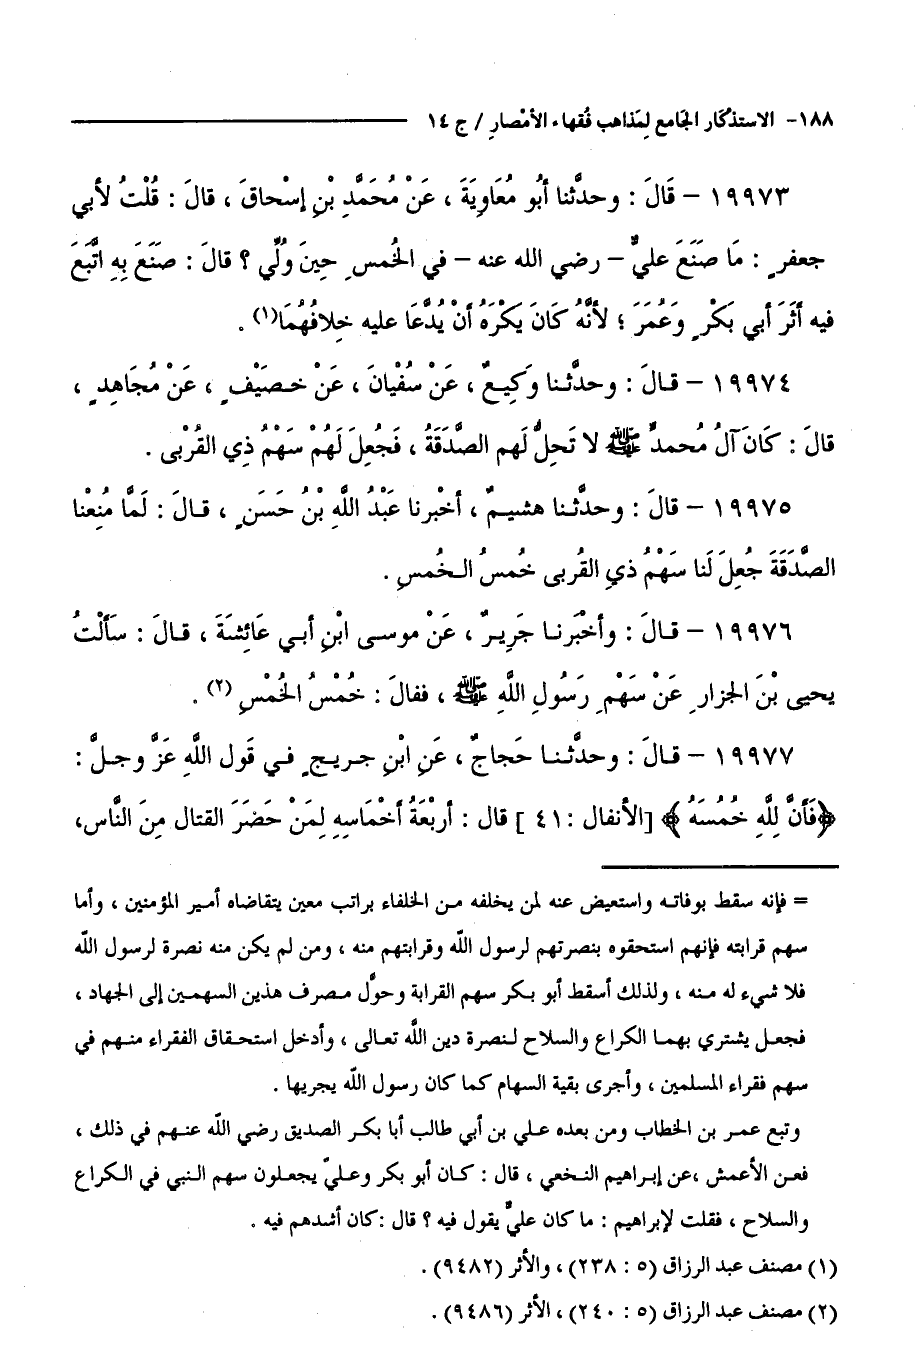 ١٨٨- الاستذكار الجامع لِمَذاهب فُقهاء الأمْصارِ / ج ١٤
١٩٩٧٣ – قَالَ : وحدَّثنا أبُو مُعَاوِيَةَ ، عَنْ مُحَمَّدِ بْنِ إسْحاقَ ، قالَ : قُلْتُ لأبي
جعفرٍ : مَا صَنَعَ عليٌّ – رضي الله عنه – في الخُمسِ حِينَ وُلِّي ؟ قالَ : صَنَعَ بِهِ اتَّبَعَ
فيه أثَرَ أبي بَكْرٍ وَعُمَرَ ؛ لأنَّهُ كَانَ يَكْرَهُ أنْ يُدَّعَا عليه خِلافُهُمَا(١) .
١٩٩٧٤ – قـالَ : وحدَّثـنا وَكِيـعٌ ، عَنْ سُفْيانَ ، عَنْ خـصَيْفٍ ، عَنْ مُجَاهدٍ ،
قالَ : كَانَ آلُ مُحمدٍ ﷺ لا تَحِلُّ لَهم الصَّدَقَةُ ، فَجُعِلَ لَهُمْ سَهْمُ ذِي القُرْبى .
١٩٩٧٥ – قالَ : وحدَّثـنا هشيـمٌ ، أخْبرنا عَبْدُ اللَّهِ بْنُ حَسَنٍ ، قـالَ : لَمَّا مُنِعْنا
الصَّدَقَةَ جُعِلَ لَنا سَهْمُ ذيِ القُربى خُمسُ الـخُمسِ .
١٩٩٧٦ – قـالَ : وأخْبَرنـا جَرِيـرٌ ، عَنْ موسى ابْنِ أبـي عَائِشَةَ ، قـالَ : سَألْتُ
يحيى بْنَ الجزارِ عَنْ سَهْمِ رَسُولِ اللَّهِ ﷺ ، فقالَ : خُمْسُ الخُمْسِ (٢) .
١٩٩٧٧ – قـالَ : وحدَّثـنـا حَجاجٌ ، عَنِ ابْنِ جريـجٍ فـي قَول اللَّهِ عَزَّ وجـلَّ :
﴿فَأنَّ لِلَّهِ خُمُسَهُ ﴾ [الأنفال :٤١ ] قال : أربْعَةُ أخْمَاسِهِ لِمَنْ حَضَرَ القتال مِنَ النَّاسِ،
= فإنه سقط بوفاتـه واستعيض عنه لمن يخلفه مـن الخلفاء براتب معين يتقاضاه أمـير المؤمنين ، وأما
سهم قرابته فإنهم استحقوه بنصرتهم لرسول اللَّه وقرابتهم منه ، ومن لم يكن منه نصرة لرسول اللَّه
فلا شيء له منـه ، ولذلك أسقط أبو بـكر سهم القرابة وحوَّل مـصرف هذين السهمـين إلى الجهاد ،
فجعـل يشتري بهمـا الكراع والسلاح لـنصرة دين اللَّه تعـالى ، وأدخل استحـقاق الفقراء منـهم في
سهم فقراء المسلمين ، وأجرى بقية السهام كما كان رسول اللَّه يجريها .
وتبع عمـر بن الخطاب ومن بعده عـلي بن أبي طالب أبا بكـر الصديق رضي اللَّه عنـهم في ذلك ،
فعـن الأعمش ،عن إبـراهيم النـخعي ، قال : كـان أبو بكر وعـليّ يجعلـون سهم الـنبي في الـكراع
والسلاح ، فقلت لإبراهيم : ما كان عليٌّ يقول فيه ؟ قال :كان أشدهم فيه .
(١) مصنف عبد الرزاق (٥ : ٢٣٨) ، والأثر (٩٤٨٢) .
(٢) مصنف عبد الرزاق (٥ : ٢٤٠) ، الأثر (٩٤٨٦) .